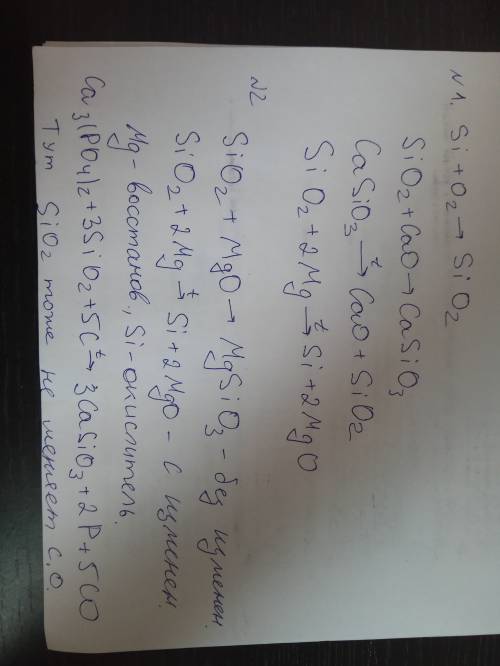 №1. Si + O2 → SiO2
SiO2 + CaO → CaSiO3
CaSiO3 →t CaO + SiO2
SiO2 + 2Mg →t Si + 2MgO
№2
SiO2 + MgO → MgSiO3 - без изменен.
SiO2 + 2Mg →t Si + 2MgO - с изменен.
Mg-восстанов, Si-окислитель.
Ca3(PO4)2 + 3SiO2 + 5C →t 3CaSiO3 + 2P + 5CO
Тут SiO2 тоже не меняет с.о.